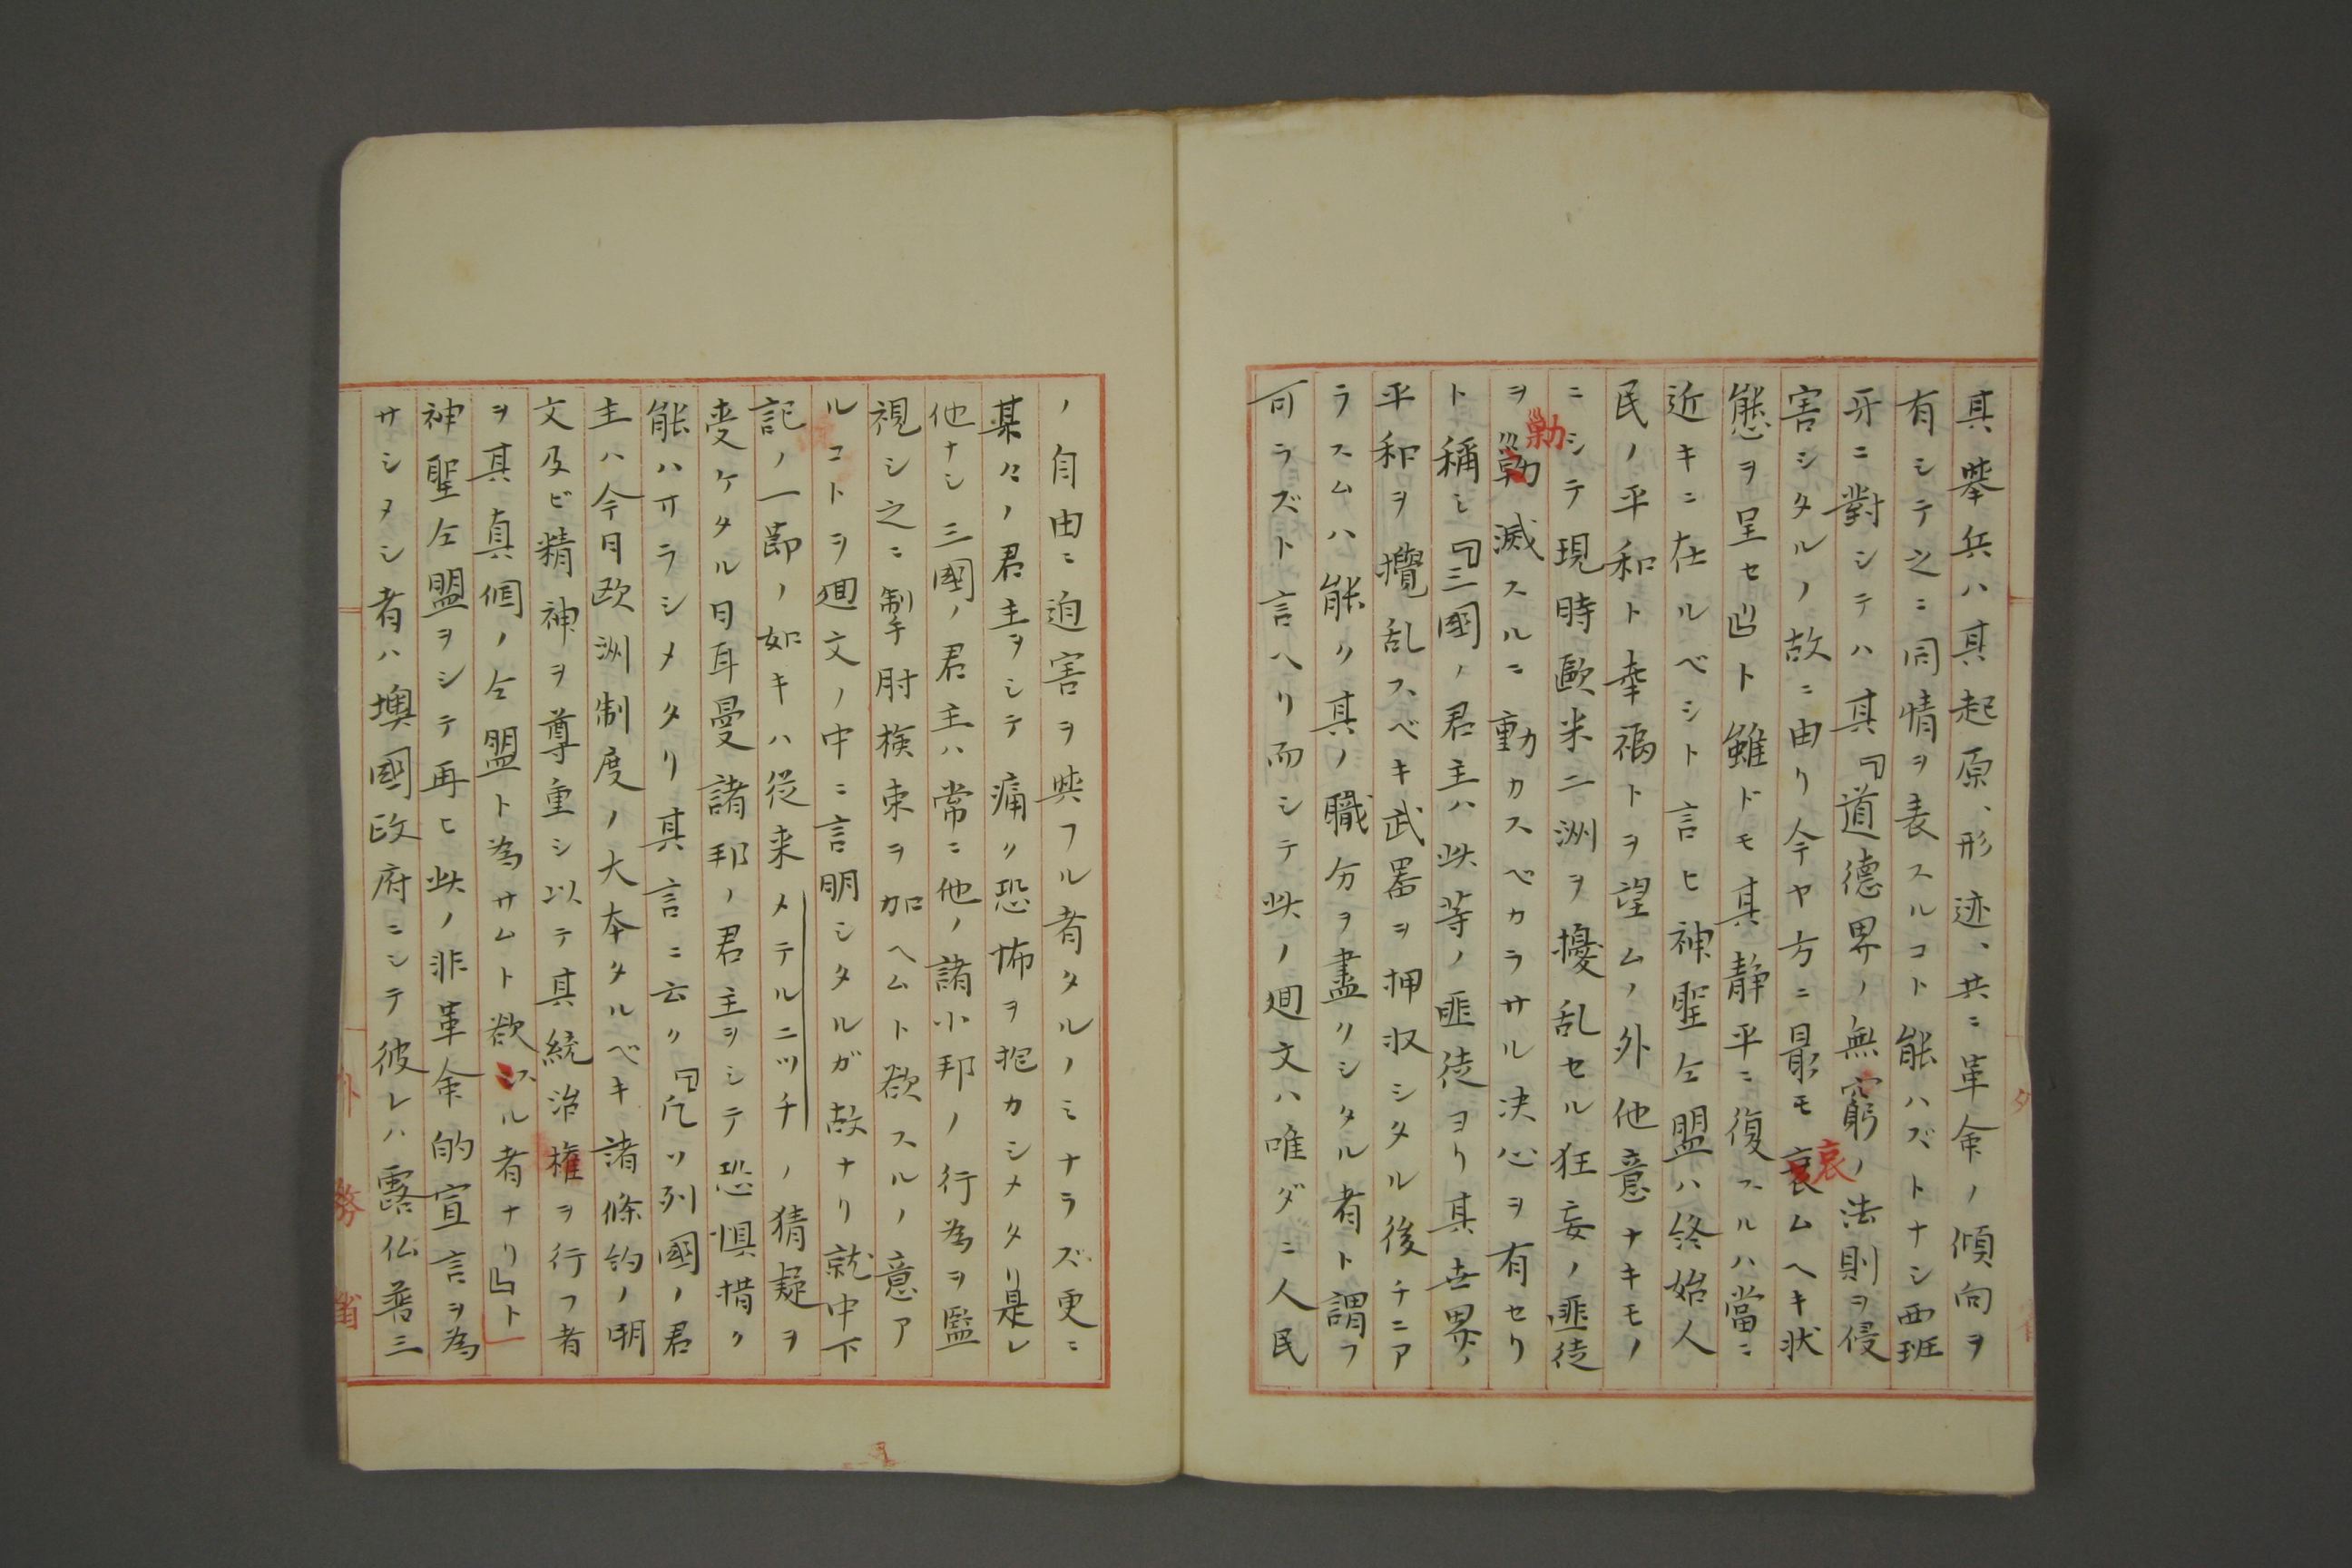 其挙兵ハ其起原、形迹、共ニ革命ノ傾向ヲ
有シテ之ニ同情ヲ表スルコト能ハズトナシ西班
牙ニ對シテハ其『道德界ノ無窮ノ法則ヲ侵
害シタルノ故ニ由リ今ヤ方ニ最モ哀ムヘキ状
態ヲ呈セ』ト雖ドモ其静平ニ復スルハ當ニ
近キニ在ルベシト言ヒ神聖仝盟ハ終始人
民ノ平和ト幸福トヲ望ムノ外他意ナキモノ
ニシテ現時歐米二洲ヲ擾乱セル狂妄ノ匪徒
ヲ勦滅スルニ動カスベカラサル决心ヲ有セリ
ト稱シ『三國ノ君主ハ此等ノ匪徒ヨリ其世界ノ
平和ヲ攪乱スベキ武噐ヲ押収シタル後チニア
ラスムハ能ク其ノ職分ヲ盡クシタル者ト謂フ
可ラズト言ヘリ而シテ此ノ廻文ハ唯ダニ人民
ノ自由ニ迫害ヲ與フル者タルノミナラズ更ニ
某々ノ君主ヲシテ痛ク恐怖ヲ抱カシメタリ是レ
他ナシ三國ノ君主ハ常ニ他ノ諸小邦ノ行為ヲ監
視シ之ニ掣肘検束ヲ加ヘムト欲スルノ意ア
ルコトヲ廻文ノ中ニ言明シタルガ故ナリ就中下
記ノ一節ノ如キハ従来メテルニッチノ猜疑ヲ
受ケタル日耳曼諸邦ノ君主ヲシテ恐惧措ク
能ハザラシメタリ其言ニ云ク『凡ソ列國ノ君
主ハ今日欧洲制度ノ大本タルベキ諸條約ノ明
文及ビ精神ヲ尊重シ以テ其統治権ヲ行フ者
ヲ其真個ノ仝盟ト為サムト欲スル者ナリ』ト
神聖仝盟ヲシテ再ヒ此ノ非革命的宣言ヲ為
サシメシ者ハ墺國政府ニシテ彼レハ露仏普三
外務省